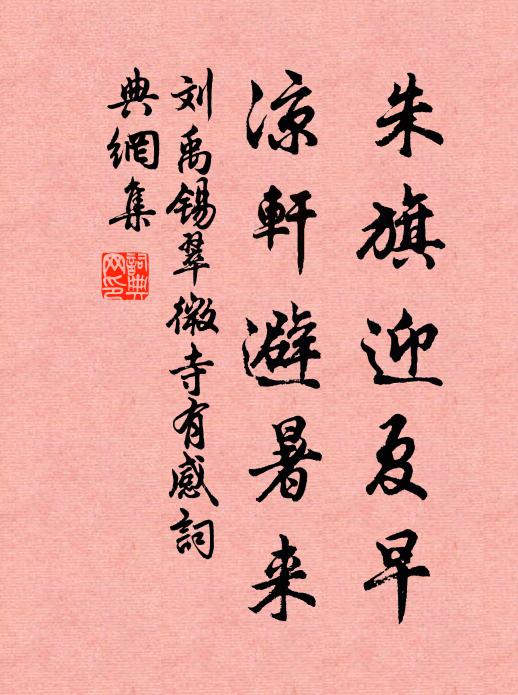 朱旗迎夏早
凉軒避暑来
刘禹锡翠微寺有感詞
典網集
詞典
网印